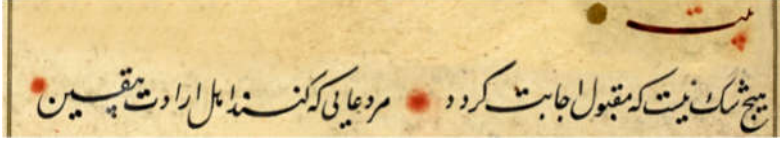 بیت
هیچ شک نیست که مقبول اجابت گردد مر دعایی که کنند اهل ارادت بیقین